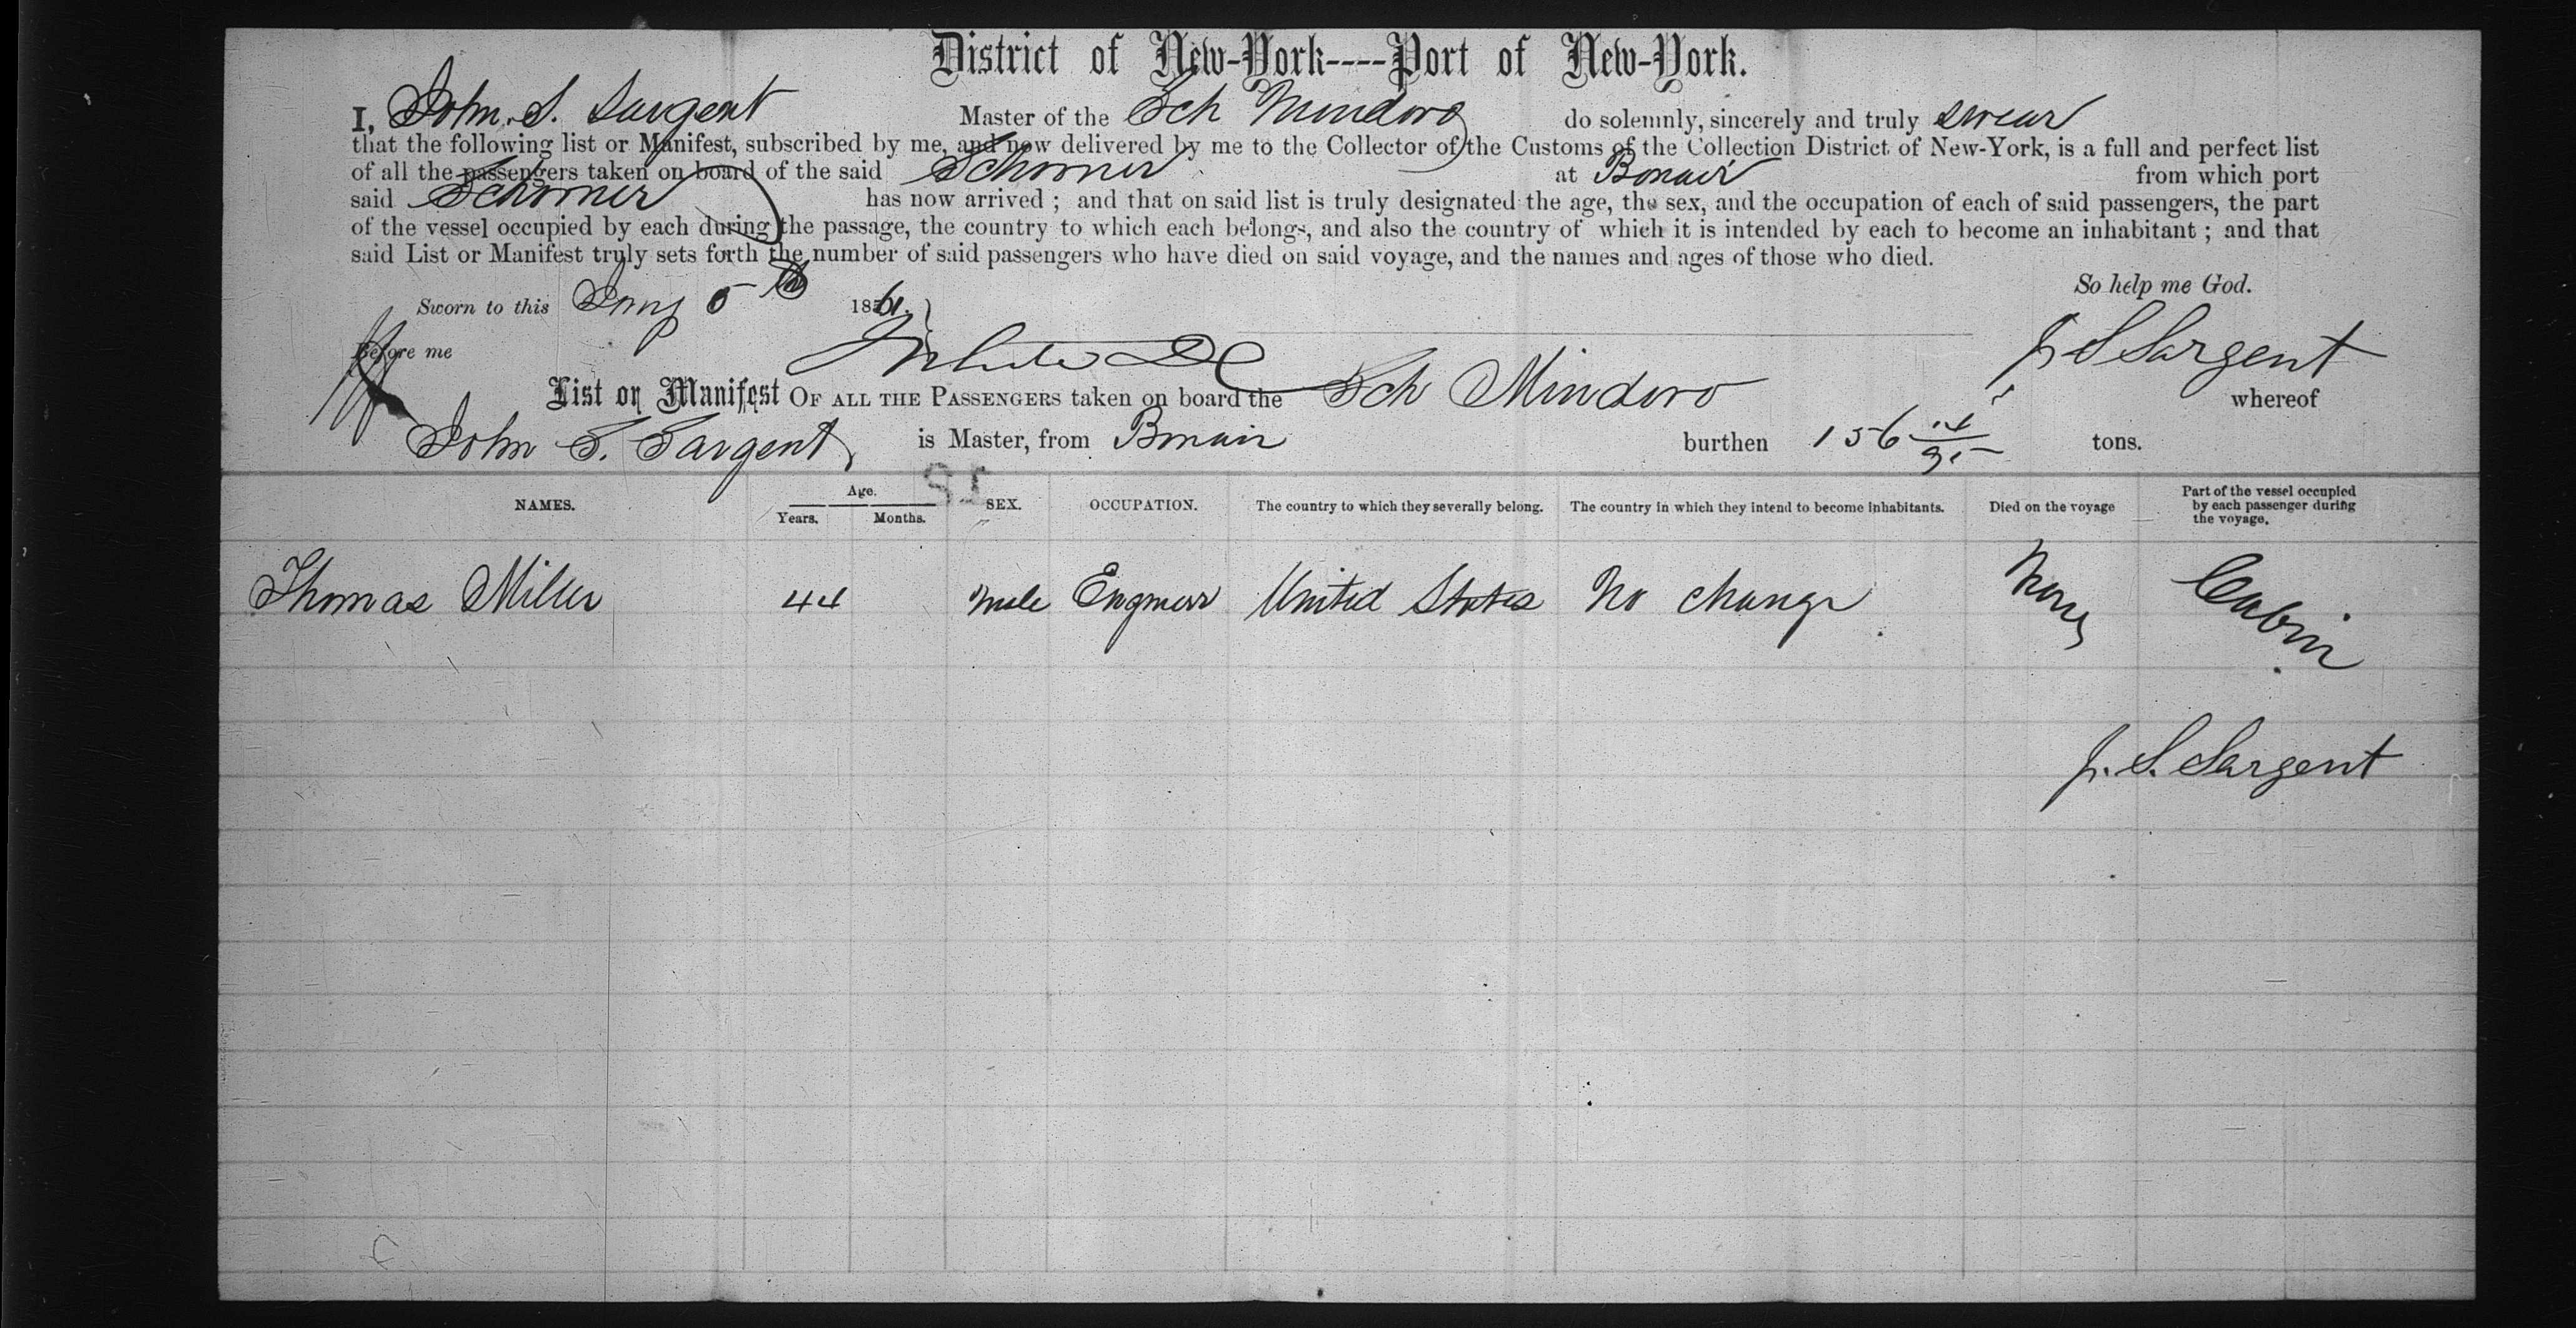 District of New-York----Port of New-York.
I, John S. Sargent Master of the Sch Mindoro do solemnly, sincerely and truly swear
that the following list or Manifest, subscribed by me, and now delivered by me to the Collector of the Customs of the Collection District of New-York, is a full and perfect list
of all the passengers taken on board of the said Schooner at Bonair from which port
said Schooner has now arrived ; and that on said list is truly designated the age, the sex, and the occupation of each of said passengers, the part
of the vessel occupied by each during the passage, the country to which each belongs, and also the country of which it is intended by each to become an inhabitant ; and that
said List or Manifest truly sets forth the number of said passengers who have died on said voyage, and the names and ages of those who died.
So help me God.
Sworn to this Jany 5th 1861.
Before me J S Sargent
List or Manifest OF ALL THE PASSENGERS taken on board the Sch Mindoro whereof
John S. Sargent is Master, from Bonair burthen 156 tons.
NAMES. Age. Years. Months. SEX. OCCUPATION. The country to which they severally belong. The country in which they intend to become inhabitants. Died on the voyage Part of the vessel occupied by each passenger during the voyage.
Thomas Miller 44 male Engineer United States No change None Cabin
J. S. Sargent